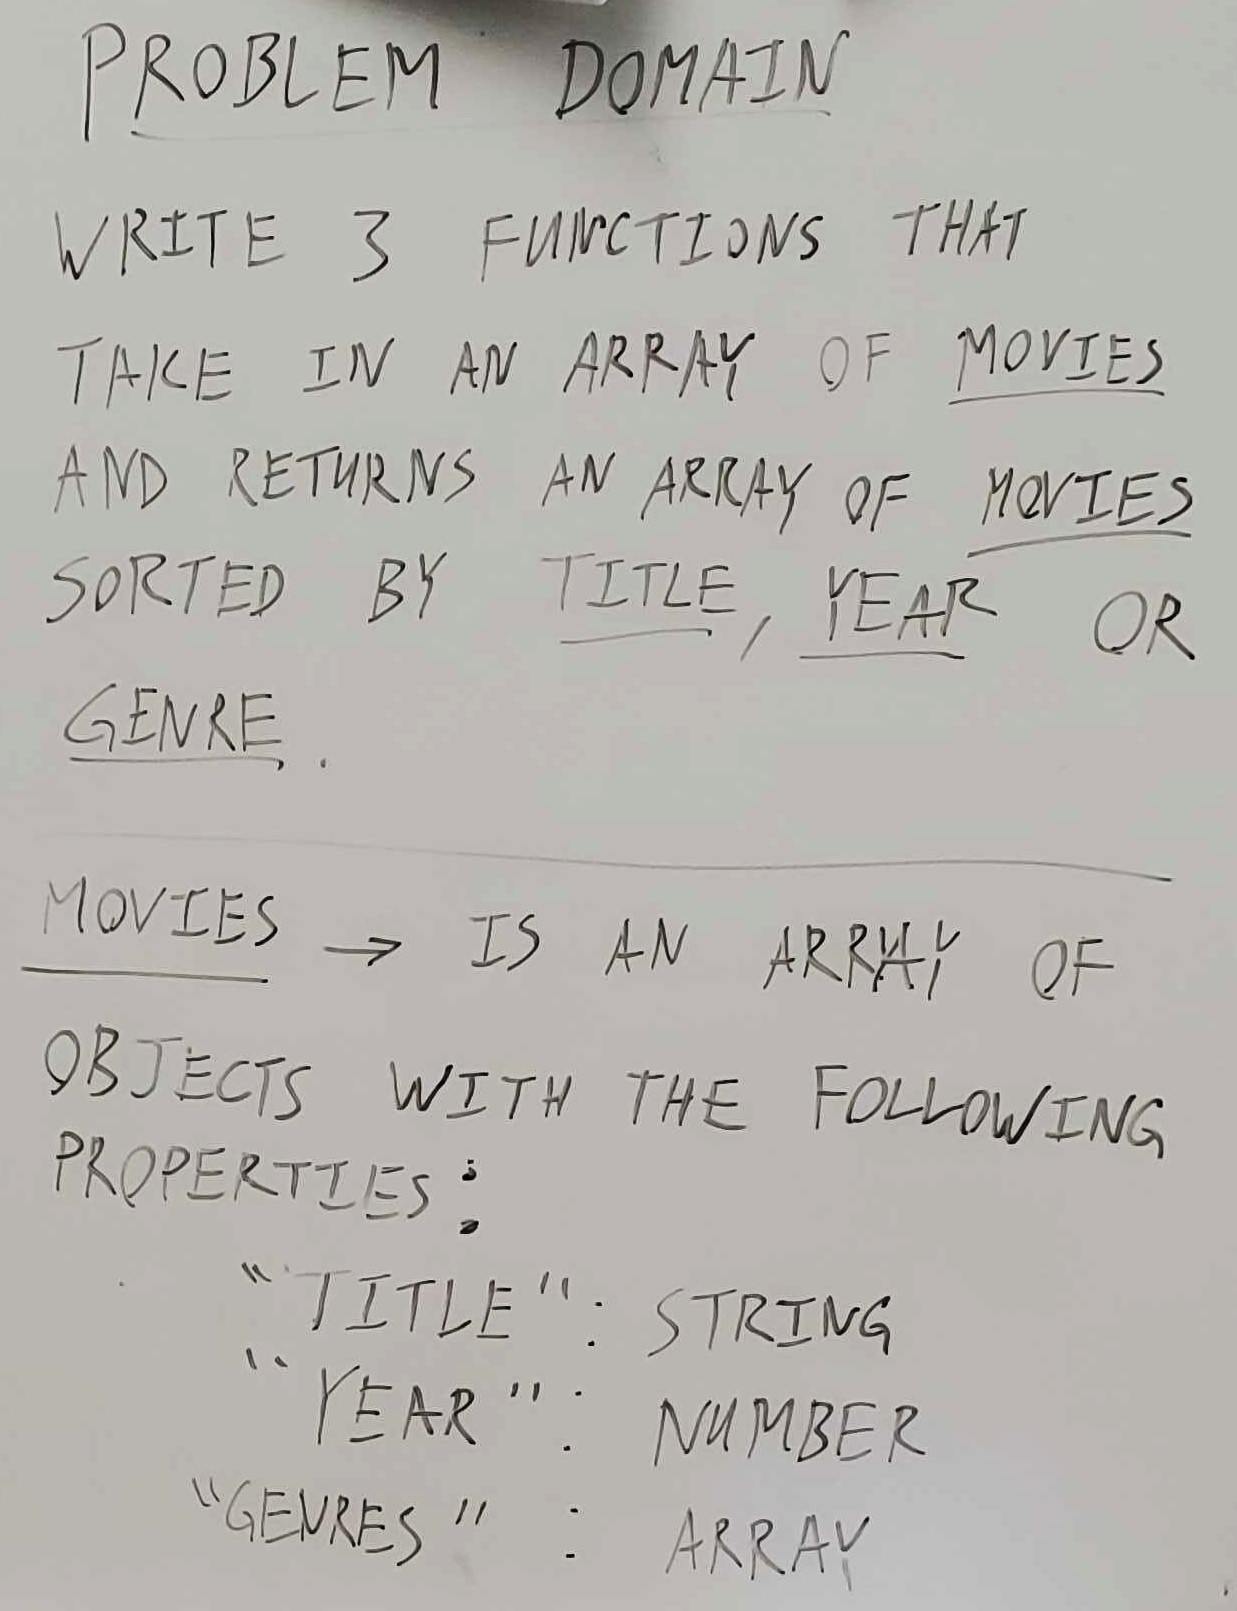 PROBLEM DOMAIN
WRITE 3 FUNCTIONS THAT
TAKE IN AN ARRAY OF MOVIES
AND RETURNS AN ARRAY OF MOVIES
SORTED BY TITLE, YEAR OR
GENRE.
MOVIES → IS AN ARRAY OF
OBJECTS WITH THE FOLLOWING
PROPERTIES:
"TITLE": STRING
"YEAR": NUMBER
"GENRES": ARRAY